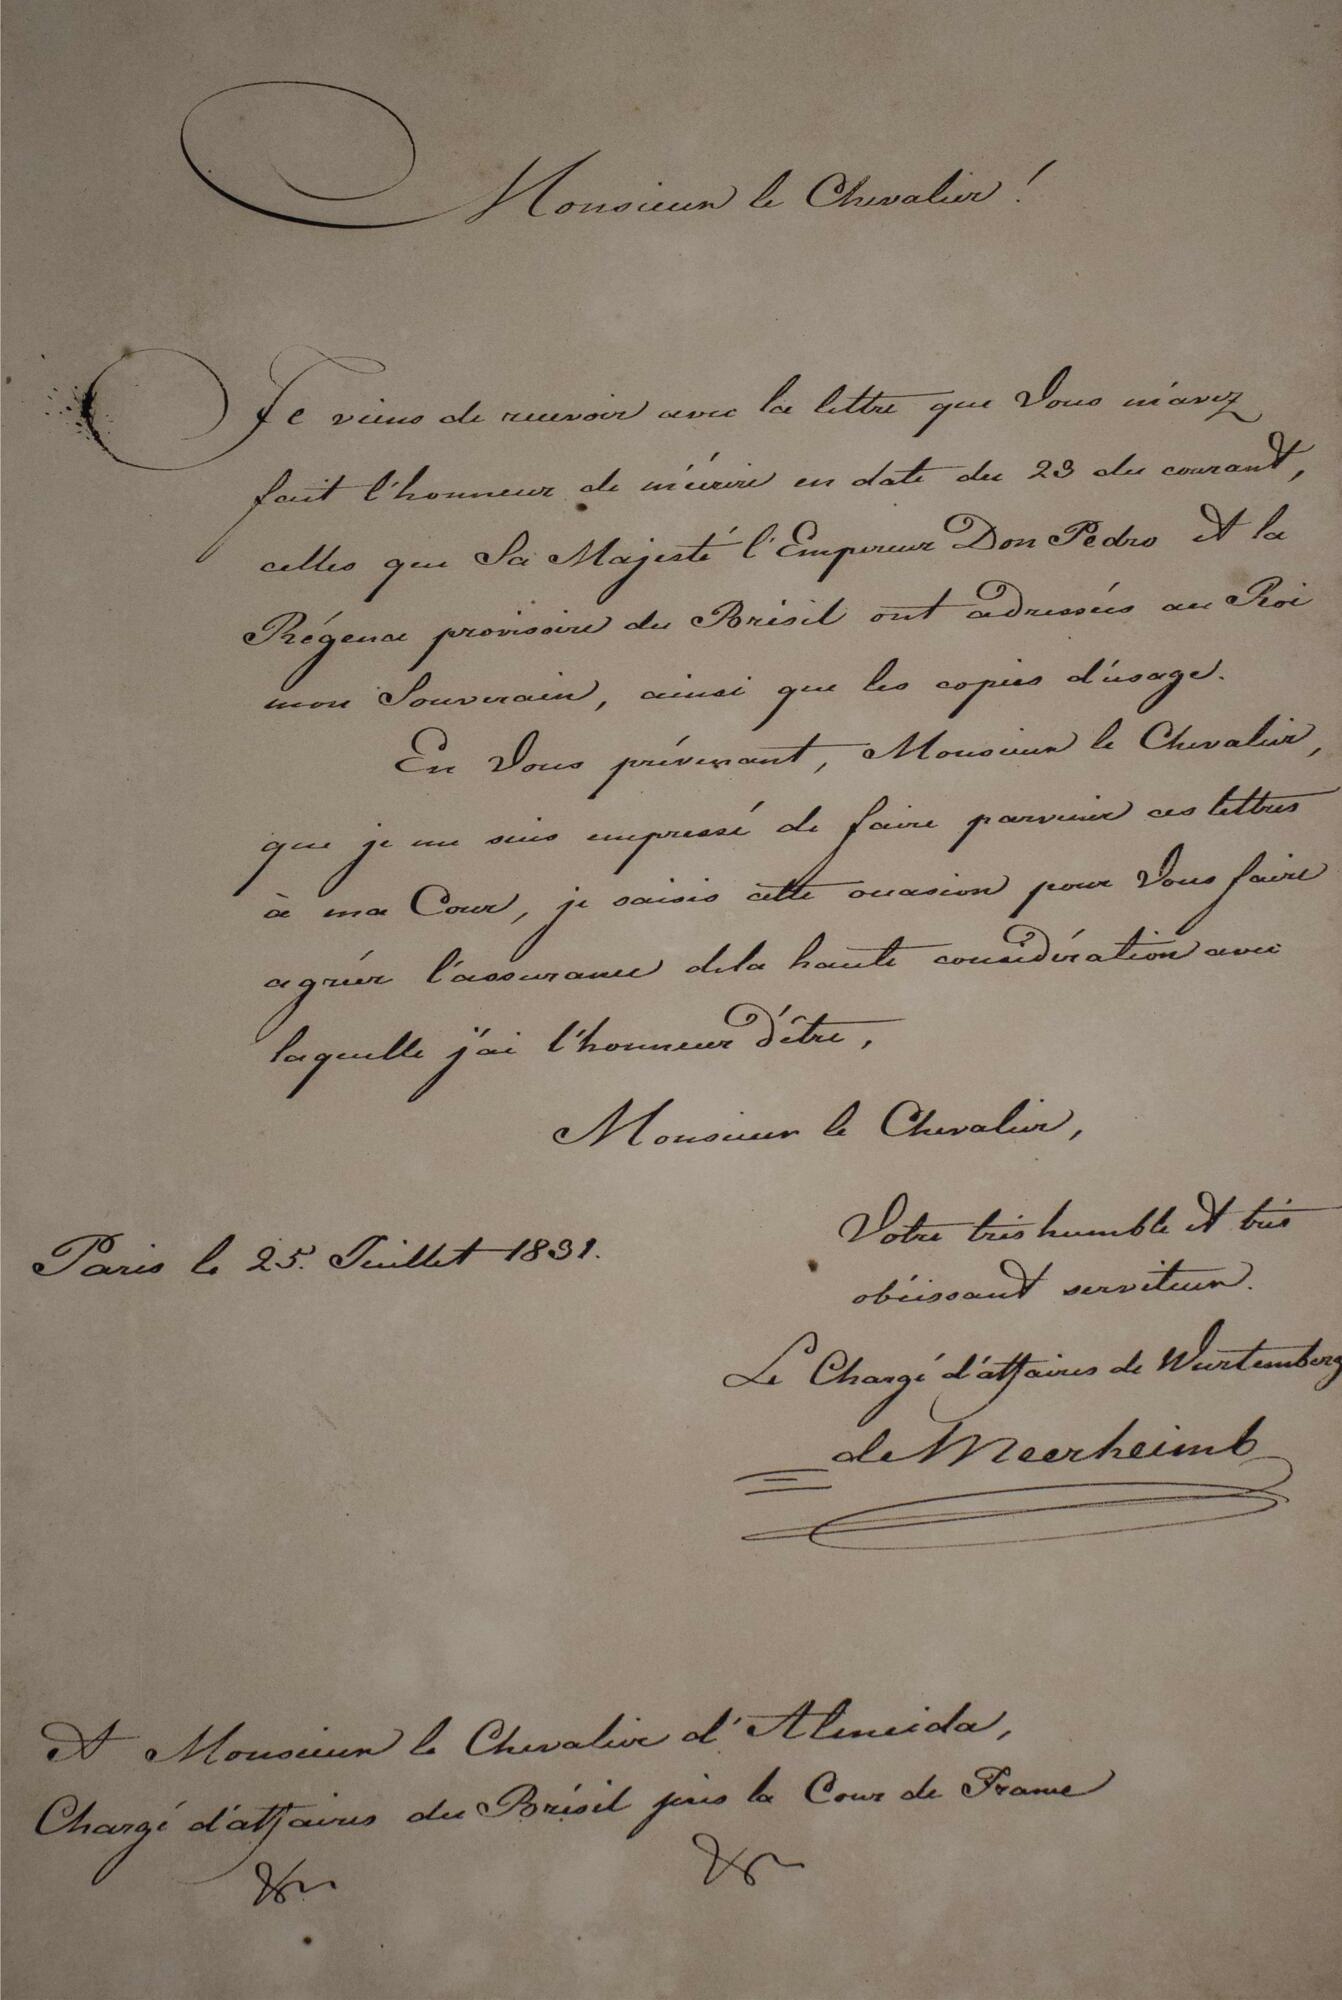 Monsieur le Chevalier!
Je viens de recevoir avec la lettre que Vous m'avez
fait l'honneur de m'écrire en date du 23 du courant,
celles que Sa Majesté l'Empereur Don Pedro et la
Régence provisoire du Brésil ont adressées au Roi
mon Souverain, ainsi que les copies d'usage.
En Vous prévenant, Monsieur le Chevalier,
que je me suis empressé de faire parvenir ces lettres
à ma Cour, je saisis cette occasion pour Vous faire
agréer l'assurance de la haute considération avec
laquelle j'ai l'honneur d'être,
Monsieur le Chevalier,
Votre très humble et très
Paris le 25. Juillet 1831.
obéissant serviteur.
Le Chargé d'affaires de Wurtemberg
de Meerheimb
A Monsieur le Chevalier d'Almeida,
Chargé d'affaires du Brésil près la Cour de France
&c &c